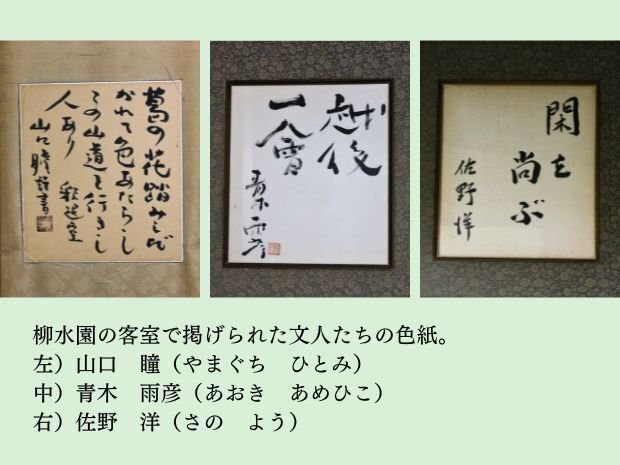 葛の花踏みしだ
かれて色あたらし
この山道を行きし
人あり 釈迢空
山口瞳謹書
越後
一會
青木雨彦
閑を
尚ぶ
佐野洋
柳水園の客室で掲げられた文人たちの色紙。
左）山口　瞳（やまぐち　ひとみ）
中）青木　雨彦（あおき　あめひこ）
右）佐野　洋（さの　よう）